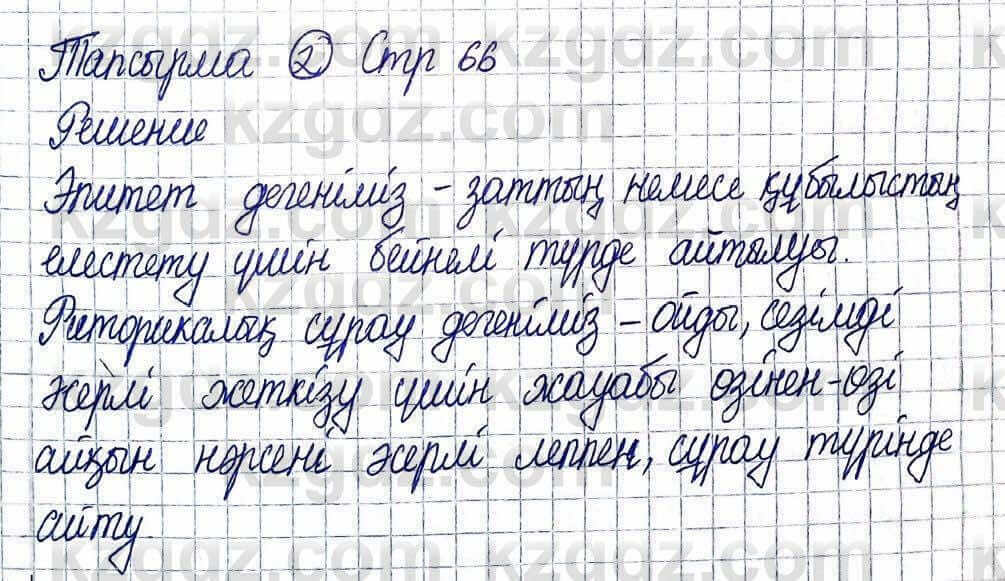 Тапсырма 2 Стр 66
Решение
Эпитет дегеніміз - заттың немесе құбылыстың
елестету үшін бейнелі түрде айтылуы.
Риторикалық сұрау дегеніміз - ойды, сезімді
әсерлі жеткізу үшін жауабы өзінен-өзі
айқын нәрсені әсерлі леппен, сұрау түрінде
айту
kzgdz.com